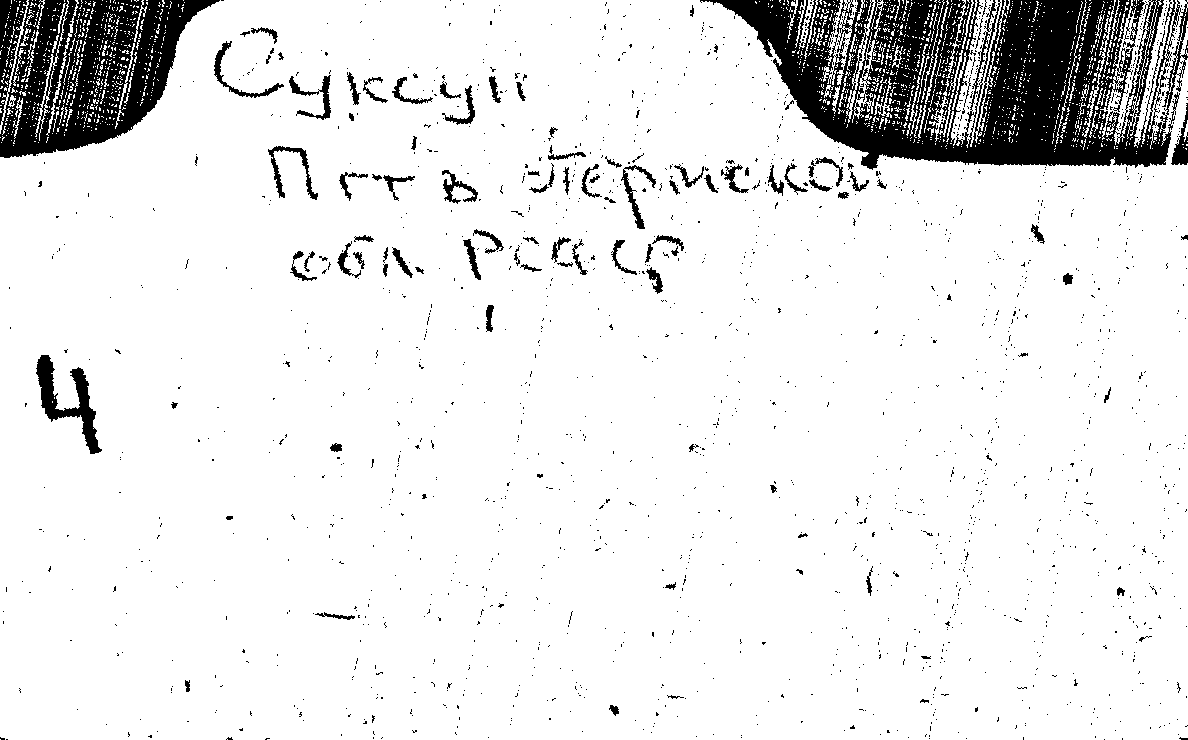 Суксун
Пгт в Пермской
обл. РСФСР
4